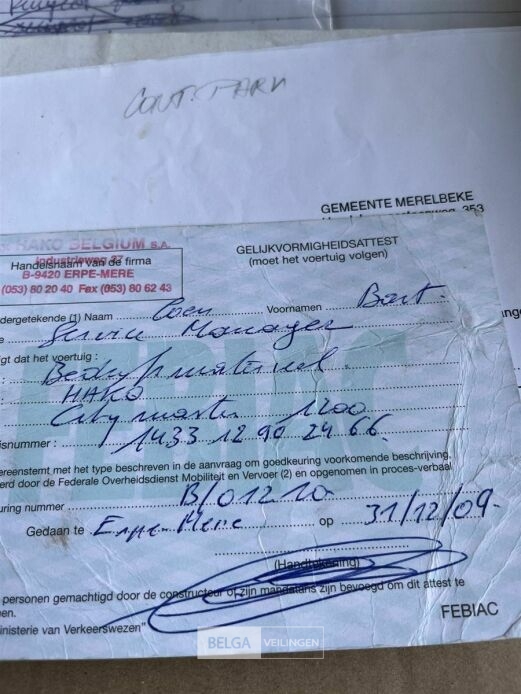 CONT. PARK
GEMEENTE MERELBEKE
353
HAKO BELGIUM S.A.
Industrieweg 37
Handelsnaam van de firma
B-9420 ERPE-MERE
(053) 80 20 40 Fax (053) 80 62 43
GELIJKVORMIGHEIDSATTEST
(moet het voertuig volgen)
dergetekende (1) Naam Coen Voornamen Bart.
Service Manager
igt dat het voertuig :
Bedrijfsmaterieel
HAKO
City master 1200
isnummer : 1433 12 90 24 66.
ereenstemt met het type beschreven in de aanvraag om goedkeuring voorkomende beschrijving,
erd door de Federale Overheidsdienst Mobiliteit en Vervoer (2) en opgenomen in proces-verbaal
uring nummer B/01210
Gedaan te Erpe-Mere op 31/12/09-
(Handtekening)
personen gemachtigd door de constructeur of zijn mandataris zijn bevoegd om dit attest te
en.
inisterie van Verkeerswezen"
FEBIAC
BELGA VEILINGEN